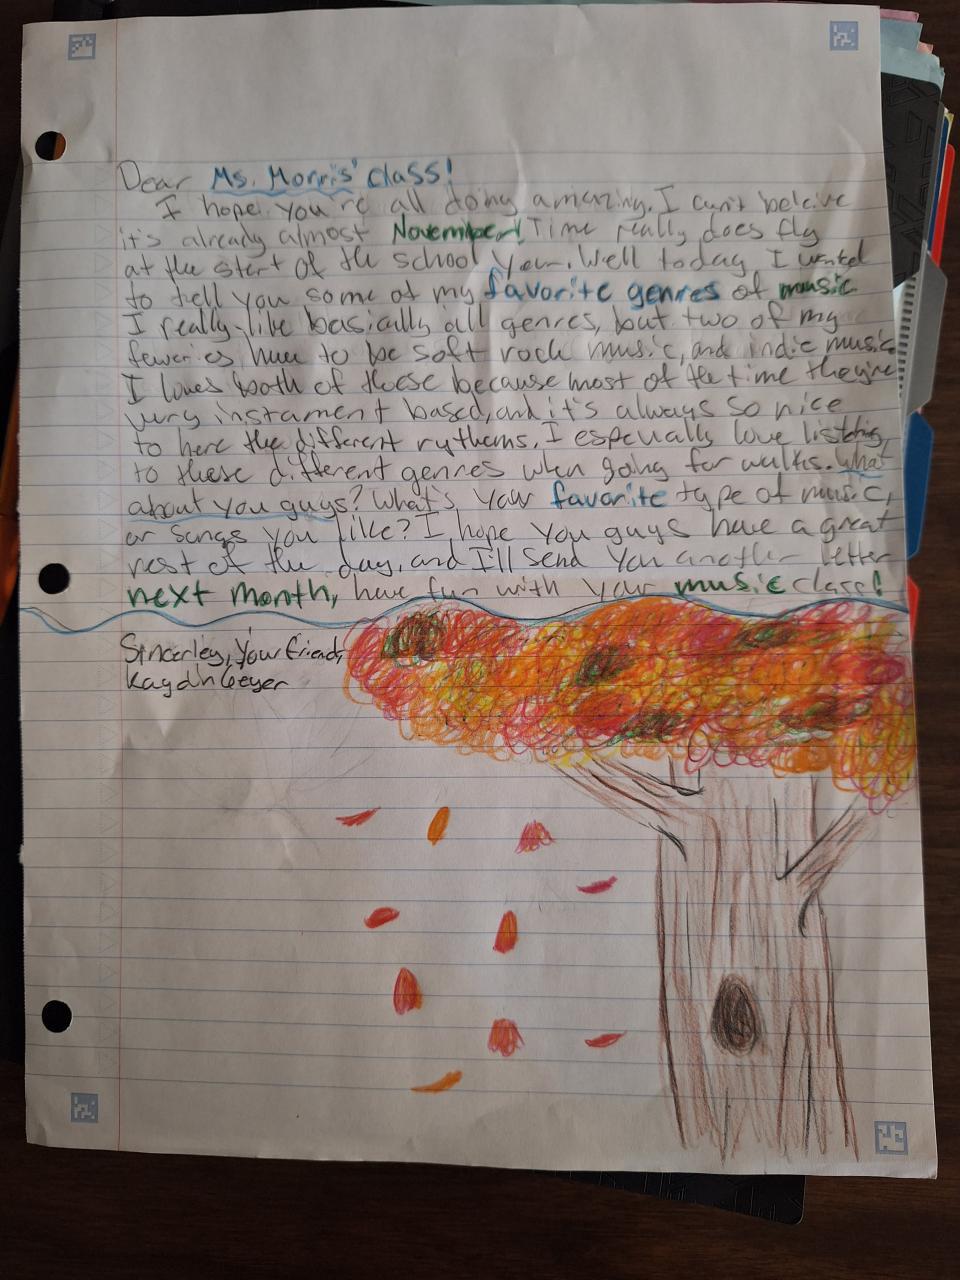 Dear Ms. Morris' class!
I hope you're all doing amazing. I can't beleive
it's already almost November! Time really does fly
at the start of the school year. Well today I wanted
to tell you some of my favorite genres of music
I really like basically all genres, but two of my
faveries have to be soft rock music, and indie music.
I loves both of these because most of the time they're
very instament based, and it's always so nice
to here the different rythems. I especually love listening
to these different genres when going for walks. What
about you guys? What's your favorite type of music,
or songs you like? I hope you guys have a great
rest of the day, and I'll send you another letter
next month, have fun with your music class!
Sincerley, your friend,
Kaydn Geyer